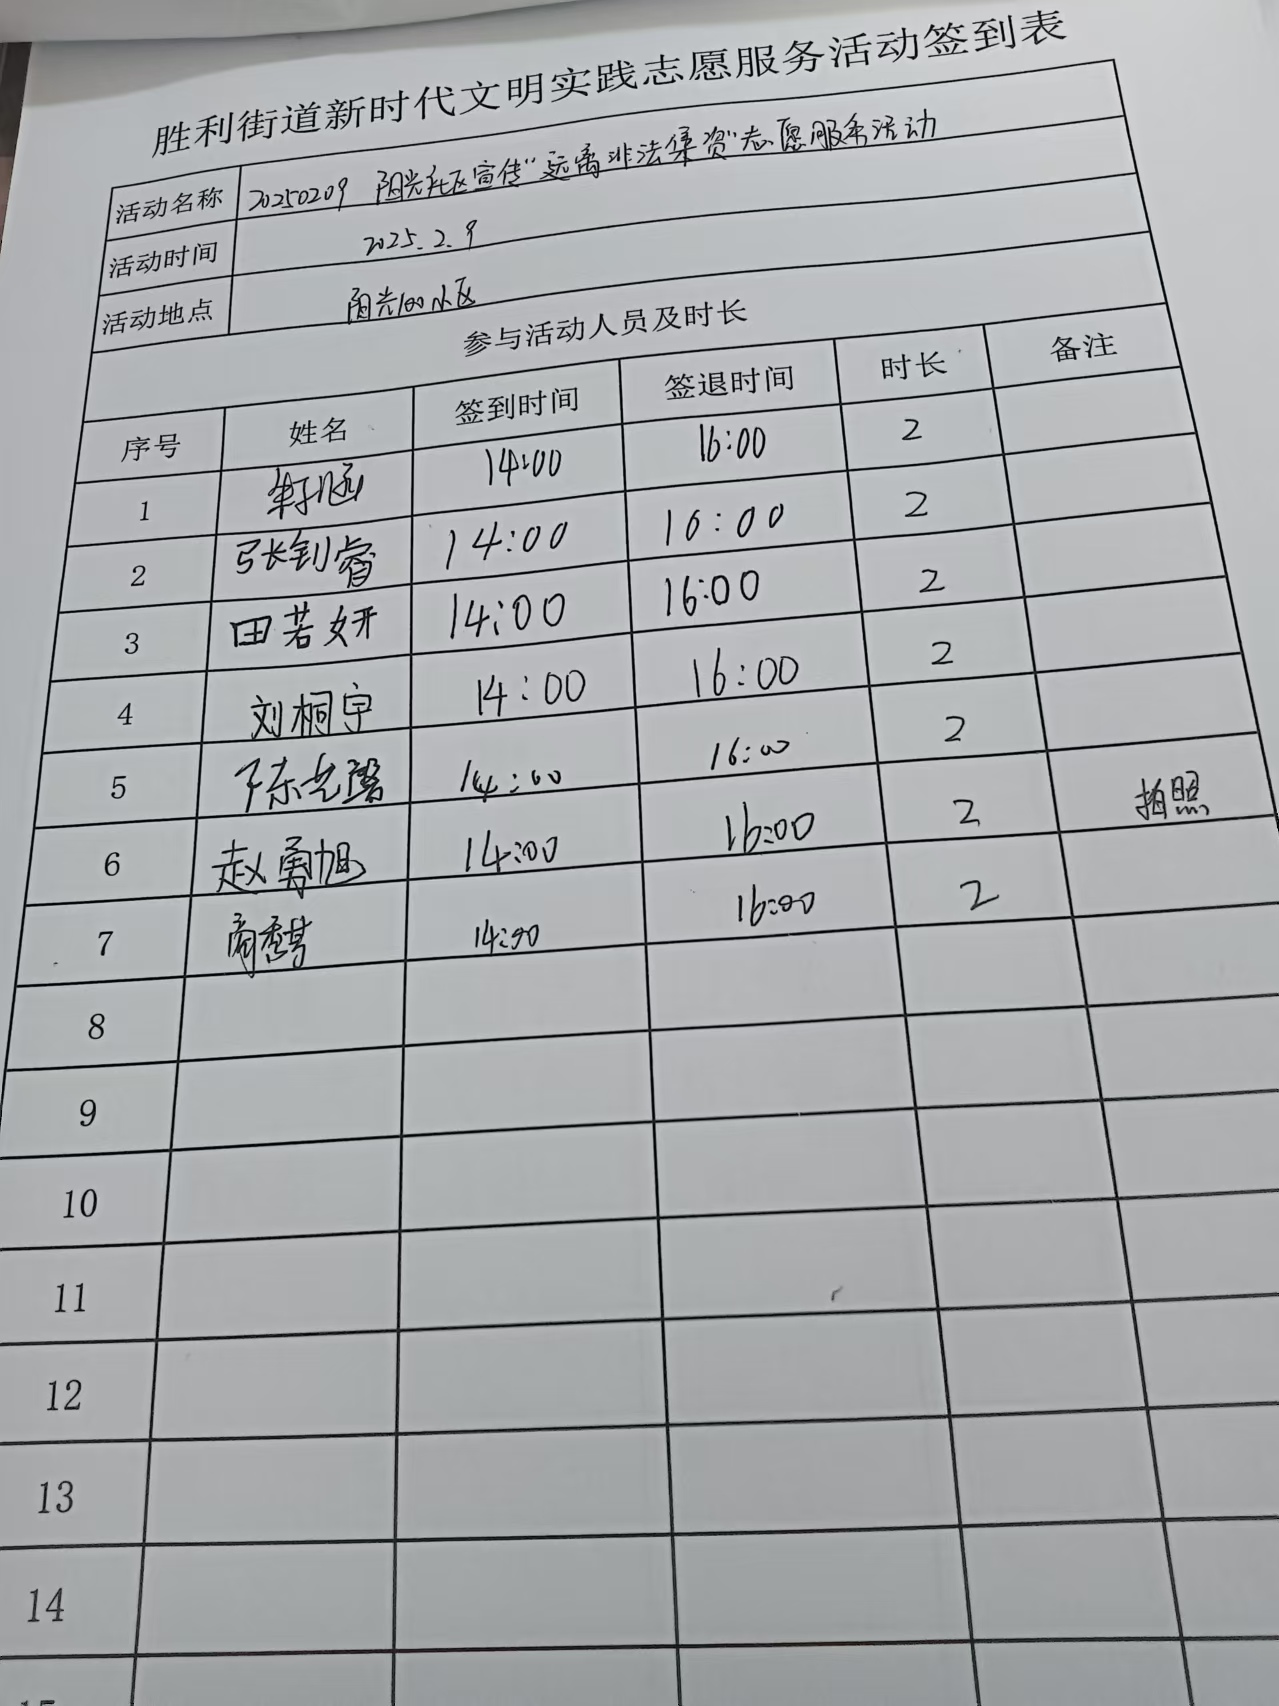 胜利街道新时代文明实践志愿服务活动签到表
活动名称 20250209 阳光社区宣传“远离非法集资”志愿服务活动
活动时间 2025.2.9
活动地点 阳光100小区
参与活动人员及时长
序号 姓名 签到时间 签退时间 时长 备注
1 14:00 16:00 2
2 张钊睿 14:00 16:00 2
3 田若妍 14:00 16:00 2
4 刘桐宇 14:00 16:00 2
5 陈 14:00 16:00 2
6 赵勇旭 14:00 16:00 2 拍照
7 商 14:00 16:00 2
8
9
10
11
12
13
14